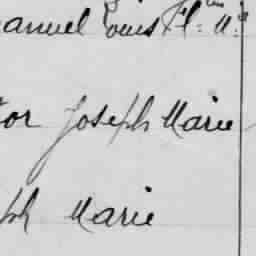 anuel Louis Fl
or Joseph Marie
ph Marie